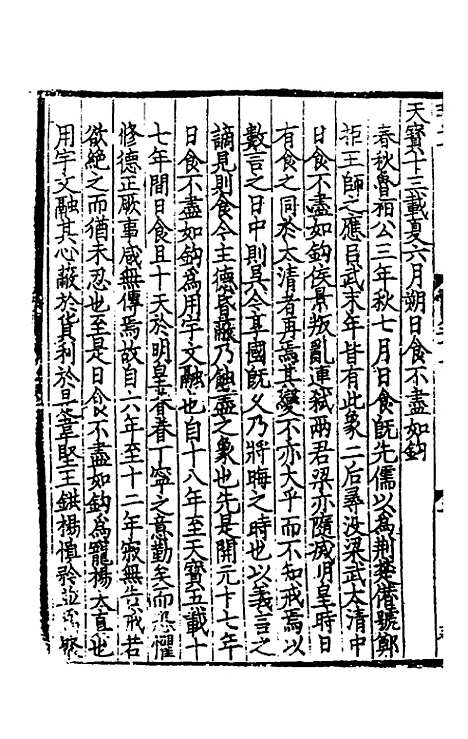 天寳十三載夏六月朔日食不盡如鈎
春秋魯桓公三年秋七月日食旣先儒以為荆楚僣號鄭
拒王師之應吕武末年皆有此象二后尋没梁武太清中
日食不盡如鈎侯景叛亂連弑兩君梁亦隨滅明皇時日
有食之同於太清者再焉其變不亦大乎而不知戒焉以
數言之日中則昃今享國旣乆乃將晦之時也以義言之
謫見則食今主德昏蔽乃蝕盡之象也先是開元十七年
日食不盡如鈎爲用宇文融也自十八年至天寳五載十
七年間日食且十天於明皇眷眷丁寧之意勤矣而恐懼
修德正厥事咸無傳焉故自六年至十二年寂無告戒若
欲絶之而猶未忍也至是日食不盡如鈎爲寵楊太真也
用宇文融其心蔽於貨利於是韋堅王鉷楊慎矜並